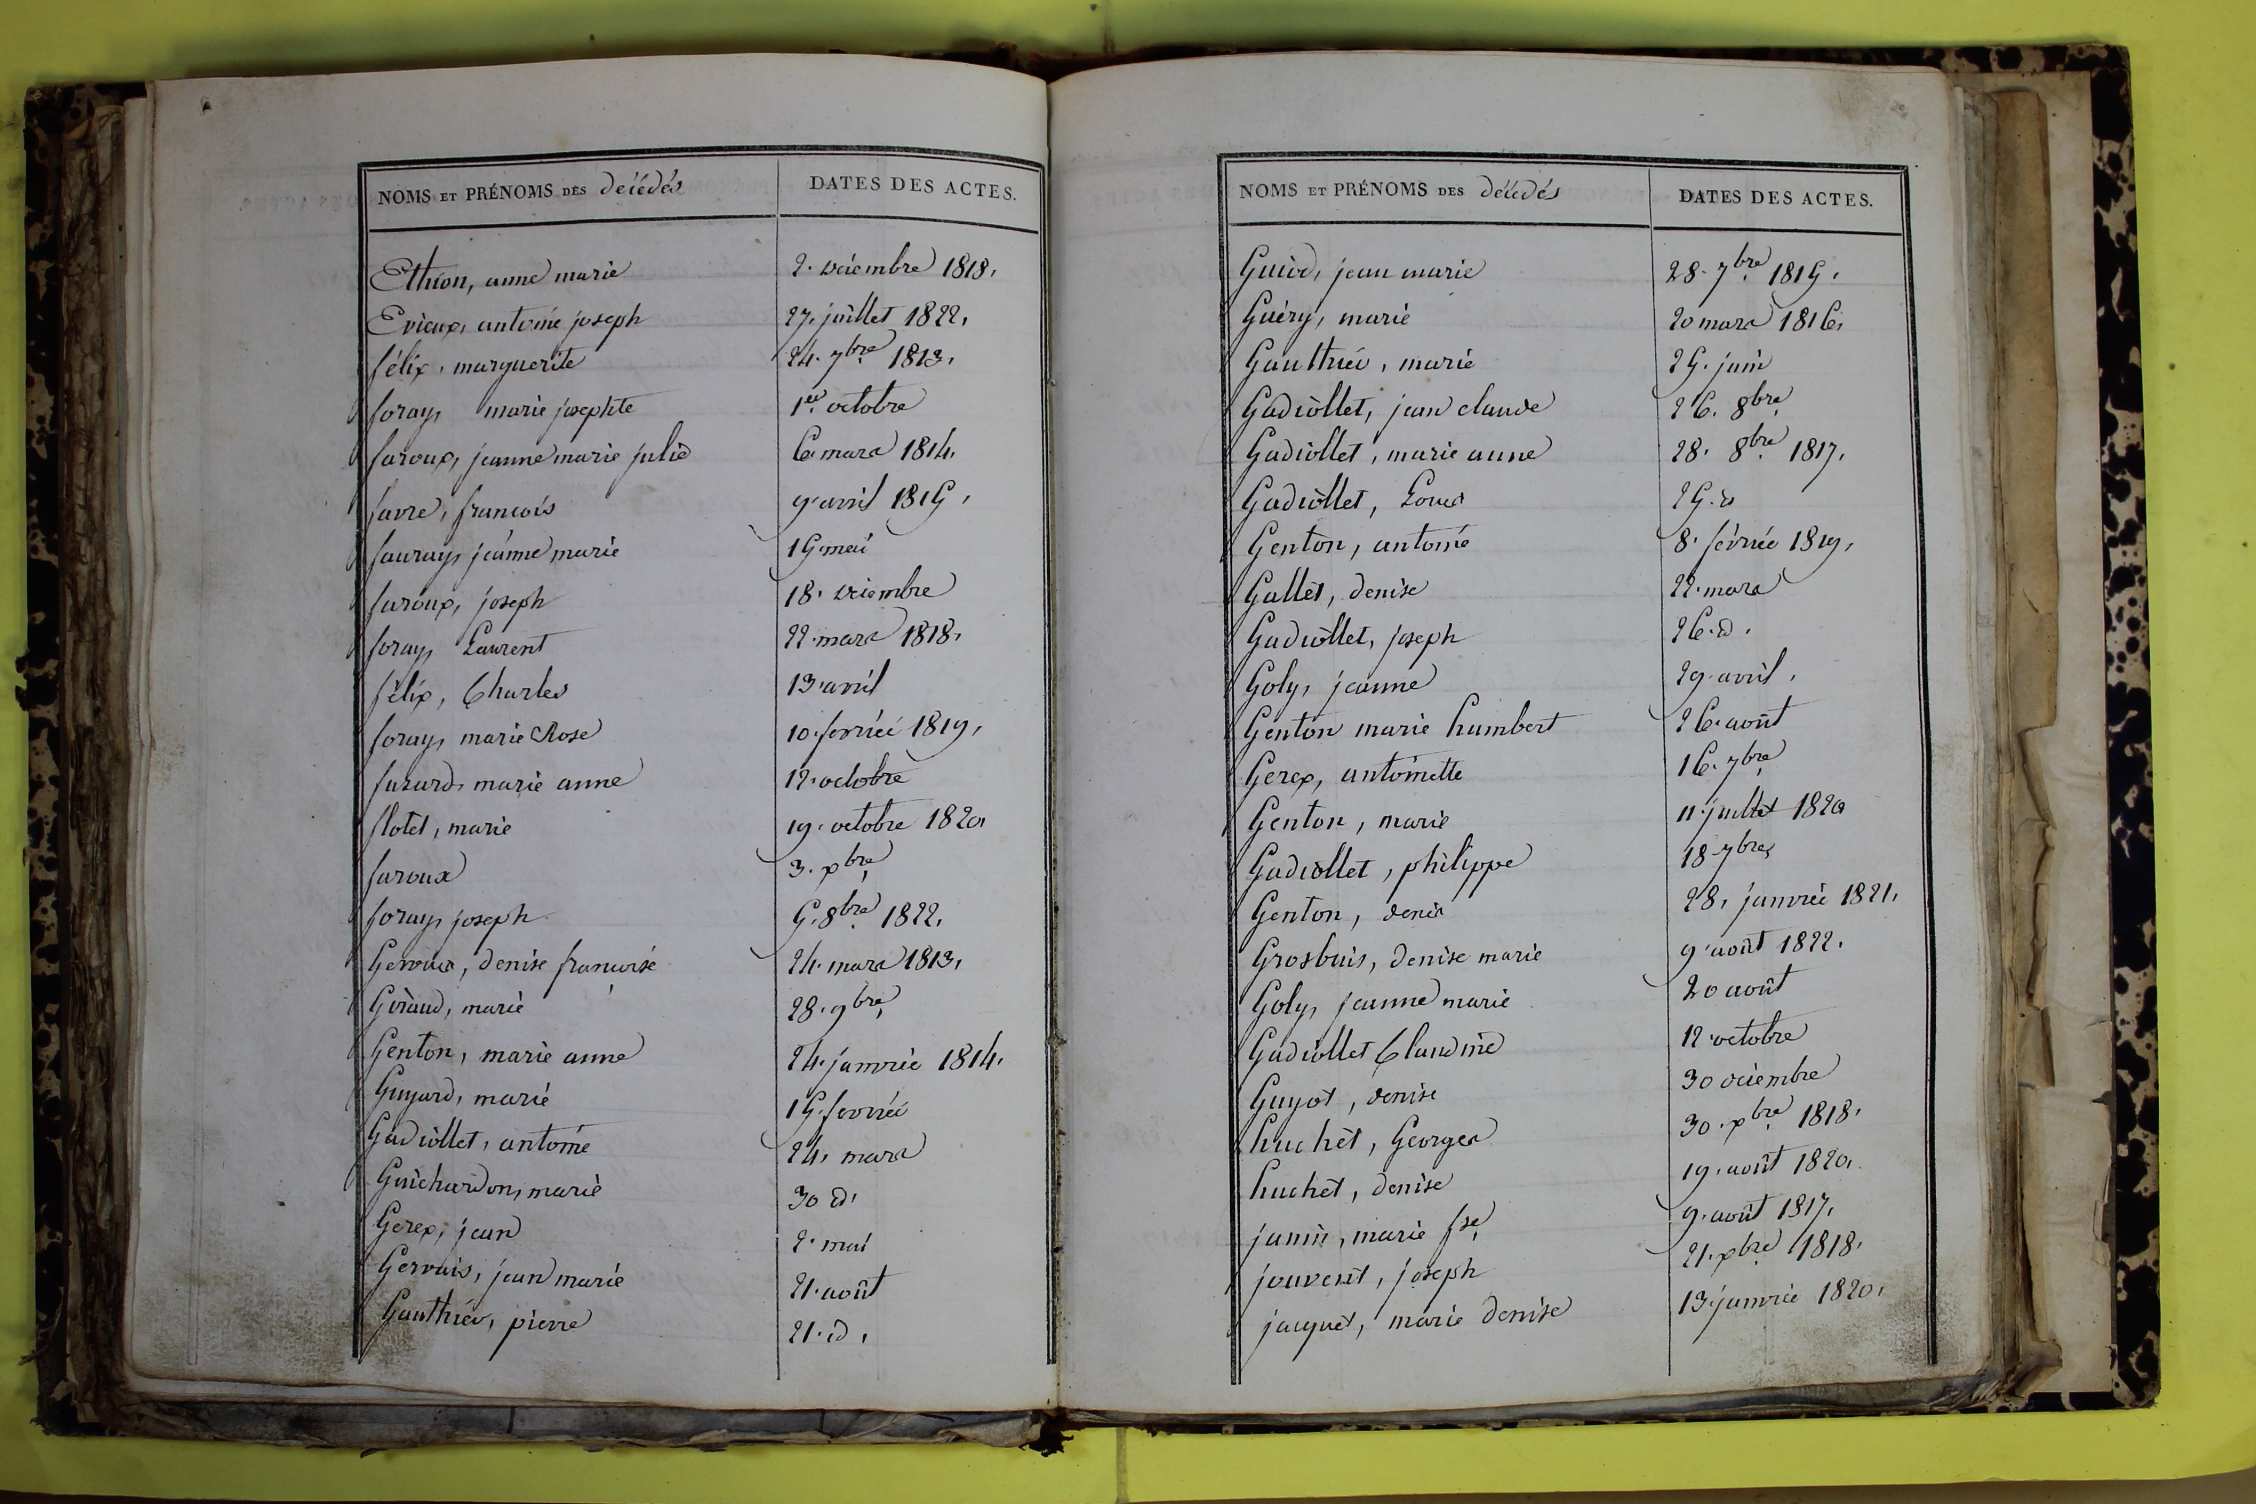 NOMS ET PRÉNOMS DES décédés DATES DES ACTES.
Ethion, anne marie 2. décembre 1818.
Evieux, antoine joseph 27. juillet 1822.
félix, marguerite 24. 7bre 1813.
foray, marie josephte 1er octobre
faroux, jeanne marie julie 6 mars 1814.
favre, françois 9. avril 1815.
fauray, jeanne marie 15. mai
faroux, joseph 18. décembre
foray, Laurent 22. mars 1818.
félix, Charles 13. avril
foray, marie Rose 10. fevrier 1819.
furard, marie anne 12. octobre
flotet, marie 19. octobre 1820.
faroux 3. xbre
foray, joseph 5. 8bre 1822.
Gervais, denise françoise 24. mars 1813.
Giraud, marie 28. 9bre
Genton, marie anne 24. janvier 1814.
Guyard, marie 15. fevrier
Gadiollet, antoine 24. mars
Guichardon, marie 30 d.
Gerex, jean 2. mai
Gervais, jean marie 21. août
Gauthier, pierre 21. d.
NOMS ET PRÉNOMS DES décédés DATES DES ACTES.
jean marie 28. 7bre 1815.
Guéry, marie 20 mars 1816.
Gauthier, marie 25. juin
Gadiollet, jean claude 26. 8bre
Gadiollet, marie anne 28. 8bre 1817.
Gadiollet, Louis 25. d
Genton, antoine 8. février 1819.
Gallet, denise 22. mars
Gadiollet, joseph 26. d.
Goly, jeanne 29. avril.
Genton marie humbert 26. août
Gerex, antoinette 16. 7bre
Genton, marie 11. juillet 1820
Gadiollet, philippe 18. 7bre
Genton, denis 28. janvier 1821.
Grosbuis, denise marie 9. août 1822.
Goly, jeanne marie 20 août
Gadiollet Claudine 12. octobre
Guyot, denise 30 décembre
huchet, Georges 30. xbre 1818.
huchet, denise 19. août 1820.
janin, marie fse 9. août 1817.
jouvent, joseph 21. xbre 1818.
jacquet, marie denise 13. janvier 1820.